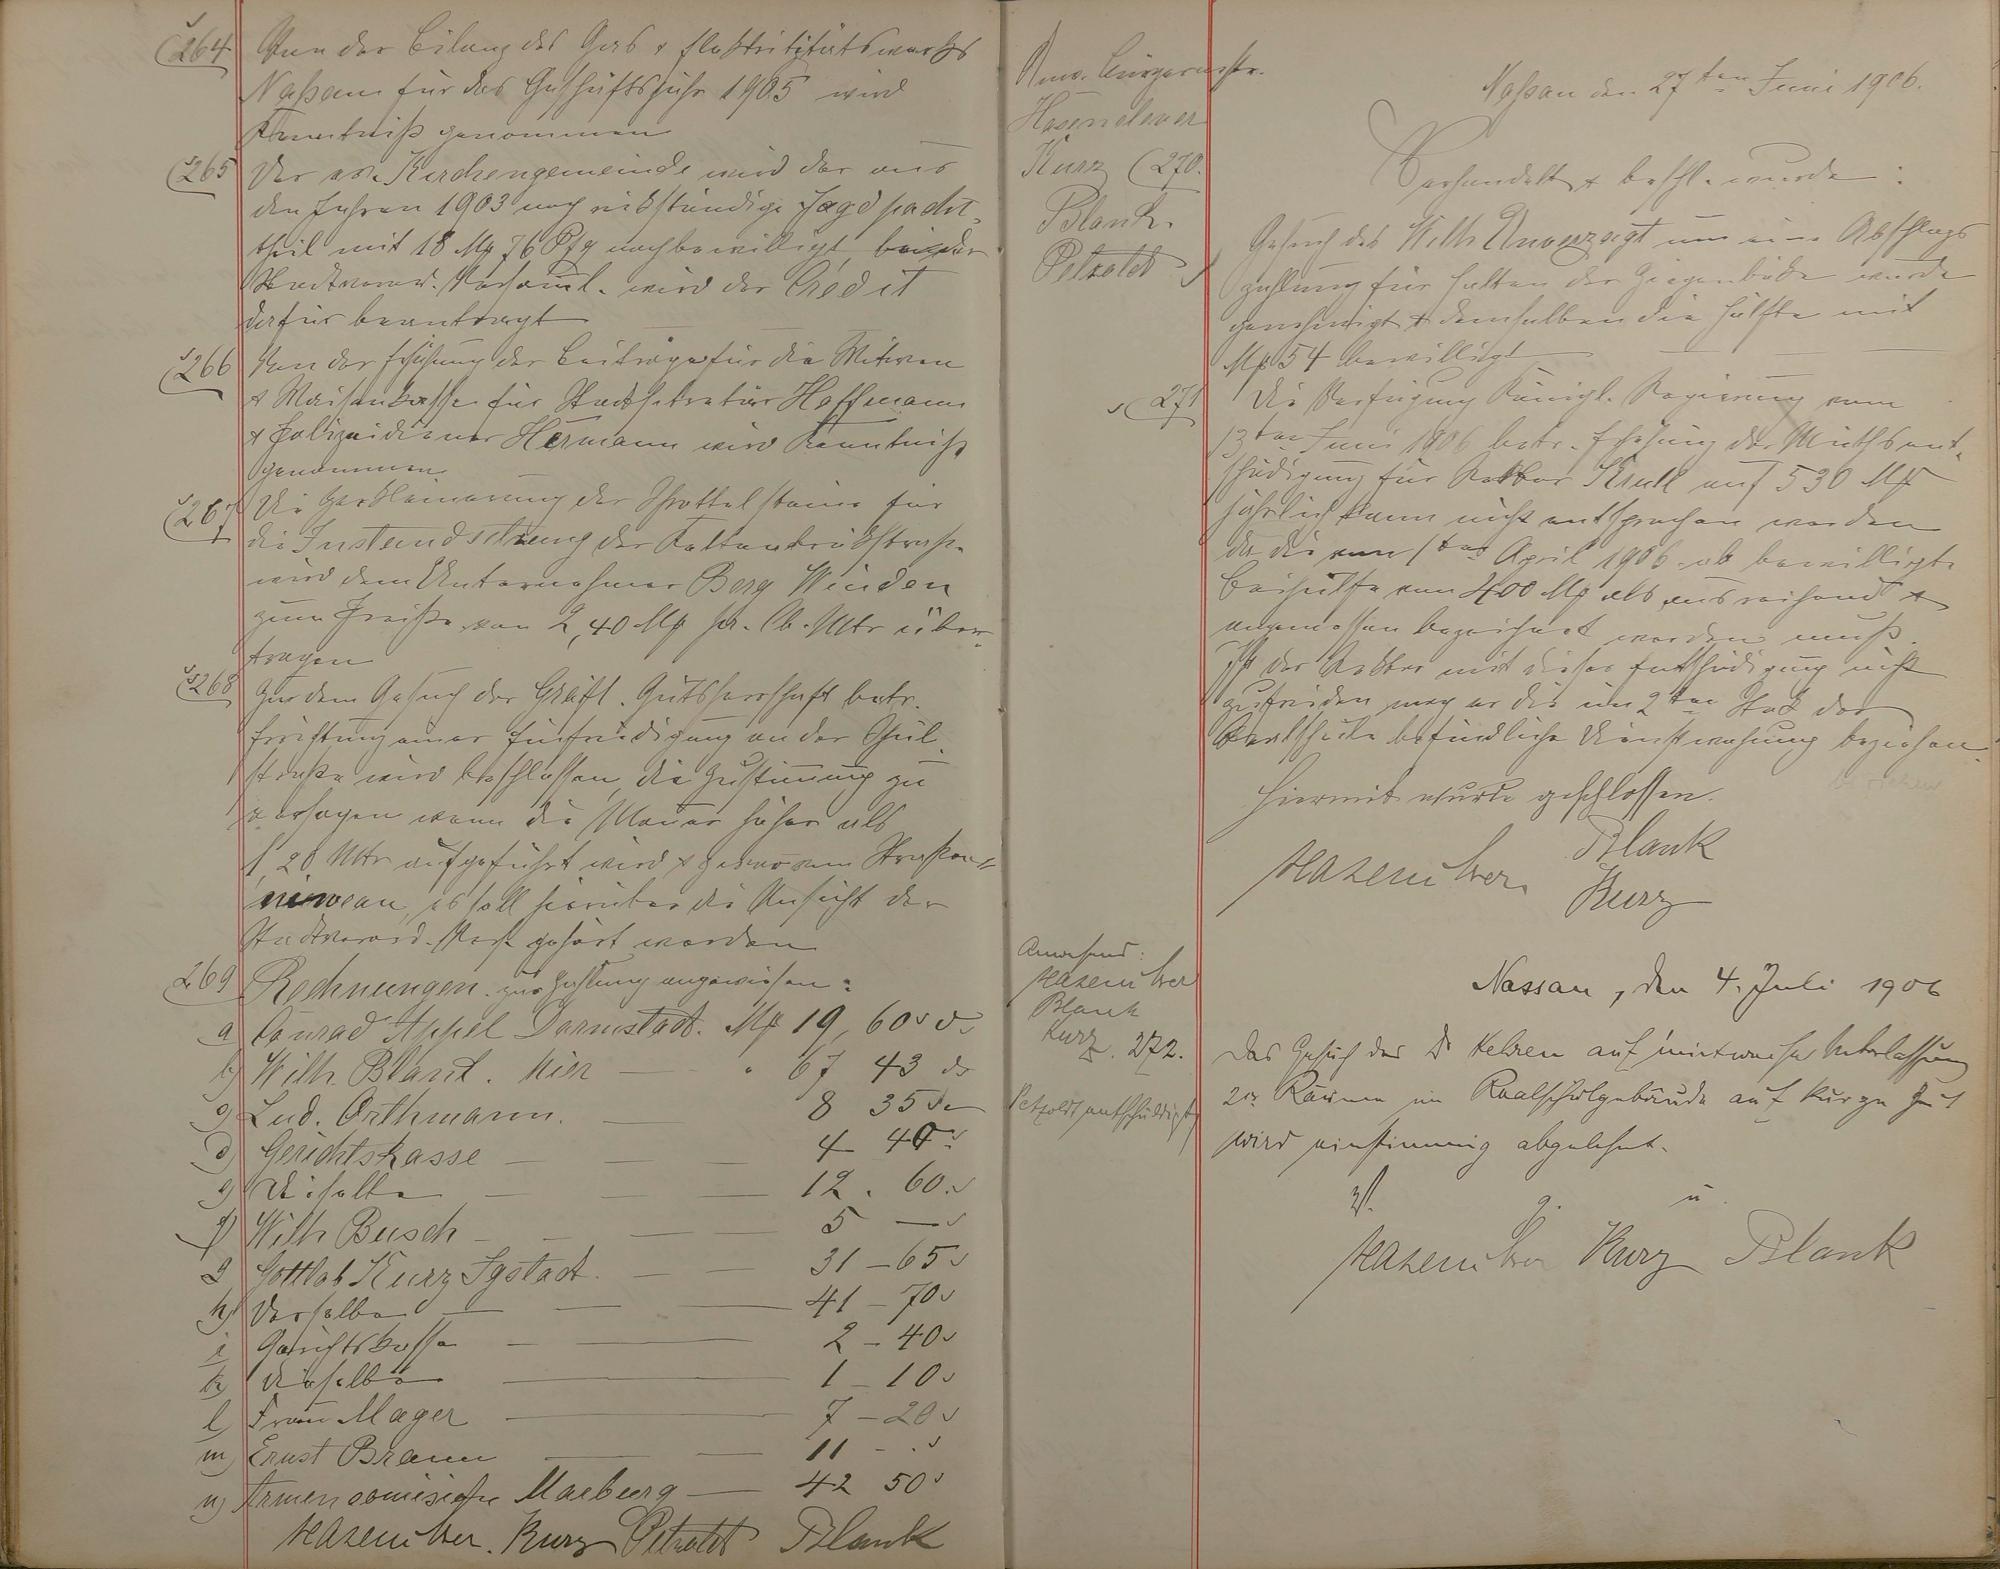 264 Von der Bilanz des Gas & Elektricitätswerks
Naßau für das Geschäftsjahr 1905 wird
Kenntniß genommen
265 Der ev. Kirchengemeinde wird der aus
den Jahren 1903 noch rückständige Jagdpacht-
theil mit 18 Mk 76 Pfg nachbewilligt, bei der
Stadtverord. Versaml. wird der Credit
dafür beantragt
266 Von der Erhöhung der Beiträge für die Witwen
& Waisenkasse für Stadtsekretär Hoffmann
& Polizeidiener Hermann wird Kenntniß
genommen
267 Die Zerkleinerung der Schottelsteine für
die Instandsetzung der Kaltenbachstraße
wird dem Unternehmer Berg Winden
zum Preiße von 2,40 Mk pr. Cb. Mtr über-
tragen
268 Zu dem Gesuch der Gräfl. Gutsherrschaft betr.
Errichtung einer Einfriedigung an der Schul-
straße wird beschlossen, die Zustimmung zu
versagen wenn die Mauer höher als
1,20 Mtr aufgeführt wird & zwar vom Straßen-
niveau, es soll hierüber die Ansicht der
Stadtverord. Vers. gehört werden
269 Rechnungen zur Zahlung angewiesen:
a Conrad Appel Darmstadt. Mk 19,60
b) Wilh. Blank. Hier 67 43
c) Lud. Orthmann. 8 35
d) Gerichtskasse 4 40
e) Dieselbe 12. 60.
f) Wilh Busch 5 —
g Gottlob Kurz Igstadt. 31 – 65
h) Derselbe 41 – 70
i Gerichtskasse 2 – 40
k) Dieselbe 1 – 10
l) Frau Mager 7 – 20
m) Ernst Braun 11 – .
n) Armen Marburg 42 50
Hasenclever. Kurz Petzoldt Blank
Anw. Bürgermstr.
Hasenclever
Kurz
Blank.
Petzoldt
Naßau den 27ten Juni 1906.
Verhandelt & beschl. wurde:
270. Gesuch des Wilh Unverzagt um eine Abschlags
zahlung für Halten der Ziegenböcke wurde
genehmigt & demselben die Hälfte mit
Mk 54 bewilligt
271 Die Verfügung Königl. Regierung vom
13ten Juni 1906 betr. Erhöhung der Miethsent-
schädigung für Rektor Krull auf 530 Mk
jährlich kann nicht entsprochen werden
da die vom 1ten April 1906 ab bewilligte
Beihülfe von 400 Mk als ausreichend &
angemessen bezeichnet werden muß.
Ist der Rektor mit dieser Entschädigung nicht
zufrieden mag er die im 2ten Stock der
Realschule befindliche Dienstwohnung beziehen.
Hiermit wurde geschlossen.
Hasenclever. Blank
Kurz
Anwesend:
Hasenclever
Blank
Kurz
Petzoldt entschuldigt
Nassau, den 4. Juli 1906
272. Das Gesuch des Dr auf mietweise Unterlassung
von Räumen im Realschulgebäude auf kurze Zeit
wird einstimmig abgelehnt.
v. g. u.
Hasenclever Kurz Blank